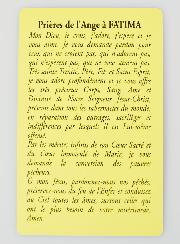 Prières de l'Ange à FATIMA
Mon Dieu, je crois, j'adore, j'espère et je
vous aime. Je vous demande pardon pour
ceux qui ne croient pas, qui n'adorent pas,
qui n'espèrent pas, qui ne vous aiment pas.
Très sainte Trinité, Père, Fils et Saint Esprit,
je vous adore profondément et je vous offre
les très précieux Corps, Sang, Ame et
Divinité de Notre Seigneur Jésus-Christ,
présents dans tous les tabernacles du monde,
en réparation des outrages, sacrilèges et
indifférences par lesquels il est Lui-même
offensé.
Par les mérites infinis de son Cœur Sacré et
du Cœur immaculé de Marie, je vous
demande la conversion des pauvres
pécheurs.
O mon Jésus, pardonnez-nous nos péchés,
préservez-nous du feu de l'Enfer et conduisez
au Ciel toutes les âmes, surtout celles qui
ont le plus besoin de votre miséricorde.
Amen.